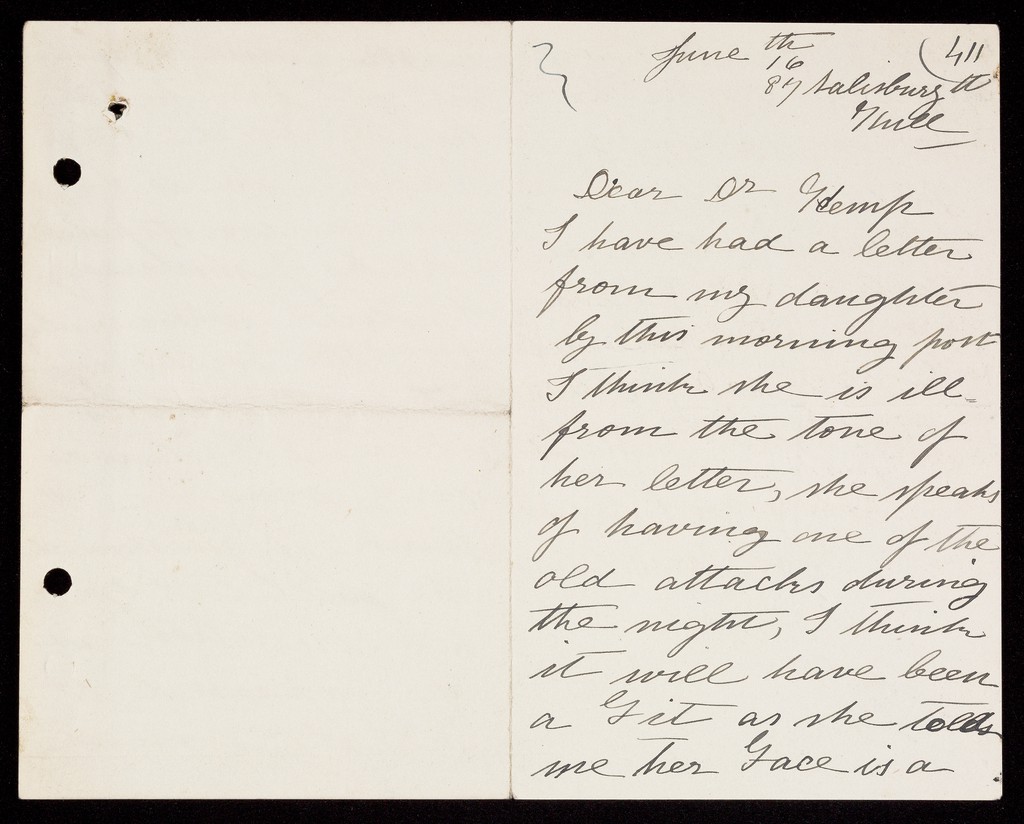 (411
June 16th
87 Salisbury St
Hull
Dear Dr Kemp
I have had a letter
from my daughter
by this morning post
I think she is ill
from the tone of
her letter, she speaks
of having one of the
old attacks during
the night, I think
it will have been
a Fit as she tells
me her Face is a